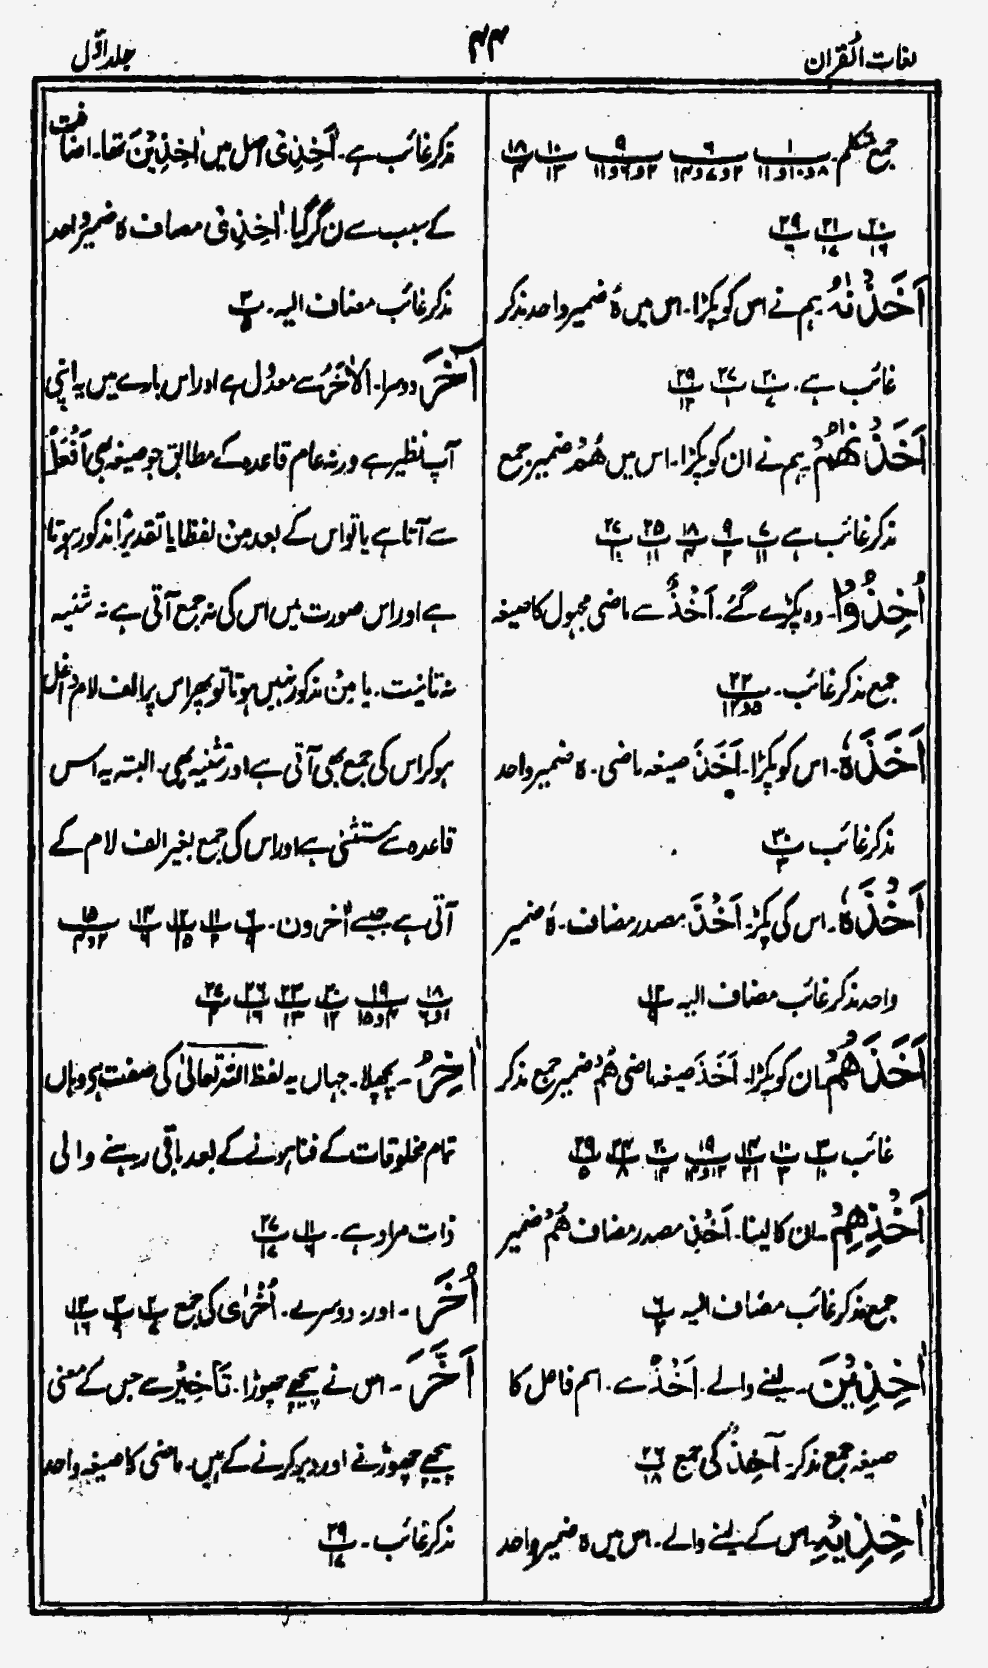 لغات القرآن
۴۴
جلد اوّل
جمع متکلم۔ ۱/۸و۱۰و۱۱ ۶/۲و۷و۱۴ ۹/۲و۶و۱۱ ۱۰/۱۳ ۱۸/۴
۲۰/۱۶ ۲۱/۱۷ ۲۹/۶
اَخَذْنٰہُ ہم نے اس کو پکڑا۔ اس میں ہُ ضمیر واحد مذکر
غائب ہے۔ ۲۰/۷ ۲۷/۱ ۲۵/۱۳
اَخَذْنٰھُمْ۔ ہم نے ان کو پکڑا۔ اس میں ھُمْ ضمیر جمع
مذکر غائب ہے ۷/۱۱ ۹/۲ ۱۸/۴ ۲۵/۱۱ ۲۷/۱۰
اُخِذُوْا۔ وہ پکڑے گئے۔ اَخْذٌ سے ماضی مجہول کا صیغہ
جمع مذکر غائب۔ ۲۲/۵و۱۲
اَخَذَہٗ۔ اس کو پکڑا۔ اَخَذَ صیغہ ماضی۔ ہ ضمیر واحد
مذکر غائب ۳۰/۳
اَخْذَہٗ۔ اس کی پکڑ۔ اَخْذَ مصدر مضاف۔ ہٗ ضمیر
واحد مذکر غائب مضاف الیہ ۱۲/۹
اَخَذَھُمْ ان کو پکڑا۔ اَخَذَ صیغہ ماضی ھُمْ ضمیر جمع مذکر
غائب ۳/۱۰ ۱۰/۳ ۱۴/۲۱ ۱۹/۱۲و۱۴ ۲۰/۱۴ ۲۴/۸ ۲۹/۵
اَخْذِھِمْ۔ ان کا لینا۔ اَخْذِ مصدر مضاف ھُمْ ضمیر
جمع مذکر غائب مضاف الیہ ۶/۲
اٰخِذِیْنَ۔ لینے والے۔ اَخْذٌ سے۔ اسم فاعل کا
صیغہ جمع مذکر۔ آخِذٌ کی جمع ۲۶/۱۸
اٰخِذِیْہِ اس کے لینے والے۔ اس میں ہ ضمیر واحد
مذکر غائب ہے۔ اٰخِذِیْ اصل میں اٰخِذِیْنَ تھا۔ اضافت
کے سبب سے ن گر گیا۔ اٰخِذِیْ مضاف ہ ضمیر واحد
مذکر غائب مضاف الیہ۔ ۳/۵
آخَرَ دوسرا۔ اَلْاٰخَرُ سے معدول ہے اور اس بارے میں یہ اپنی
آپ نظیر ہے ورنہ عام قاعدہ کے مطابق جو صیغہ بھی اَفْعَلُ
سے آتا ہے یا تو اس کے بعد مِنْ لفظاً یا تقدیرًا مذکور ہوتا
ہے اور اس صورت میں اس کی نہ جمع آتی ہے نہ تثنیہ
نہ تانیث۔ یا مِنْ مذکور نہیں ہوتا تو پھر اس پر الف لام داخل
ہو کر اس کی جمع بھی آتی ہے اور تثنیہ بھی۔ البتہ یہ اس
قاعدہ سے مستثنٰی ہے اور اس کی جمع بغیر الف لام کے
آتی ہے جیسے اٰخرون۔ ۶/۹ ۱۱/۲ ۱۲/۱۵ ۱۴/۶ ۱۵/۲و۴
۱۸/۱و۶ ۱۹/۴و۱۵ ۲۰/۱۲ ۲۳/۱۳ ۲۶/۱۶ ۲۷/۲
اٰخِرُ۔ پچھلا۔ جہاں یہ لفظ اللہ تعالیٰ کی صفت ہو وہاں
تمام مخلوقات کے فنا ہونے کے بعد باقی رہنے والی
ذات مراد ہے۔ ۱۱/۶ ۲۷/۱۷
اُخَرَ۔ اور۔ دوسرے۔ اُخْرٰی کی جمع ۲/۷ ۳/۹ ۱۲/۱۶
اَخَّرَ۔ اس نے پیچھے چھوڑا۔ تَاْخِیْرٌ سے جس کے معنی
پیچھے چھوڑنے اور دیر کرنے کے ہیں۔ ماضی کا صیغہ واحد
مذکر غائب۔ ۲۹/۱۷